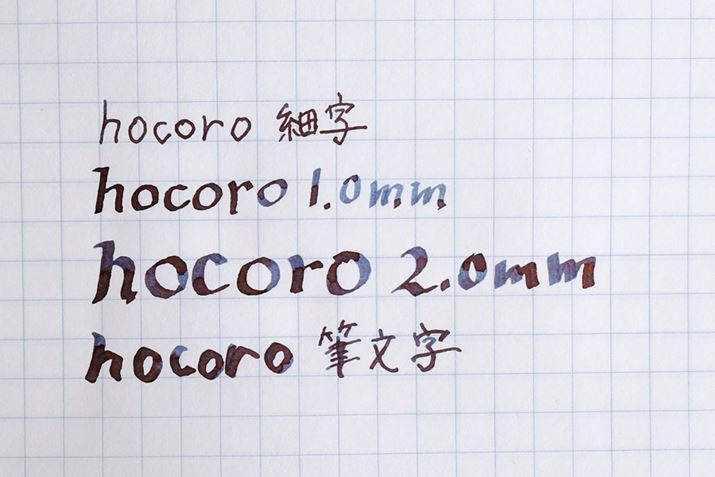 hocoro 細字
hocoro 1.0mm
hocoro 2.0mm
hocoro 筆文字